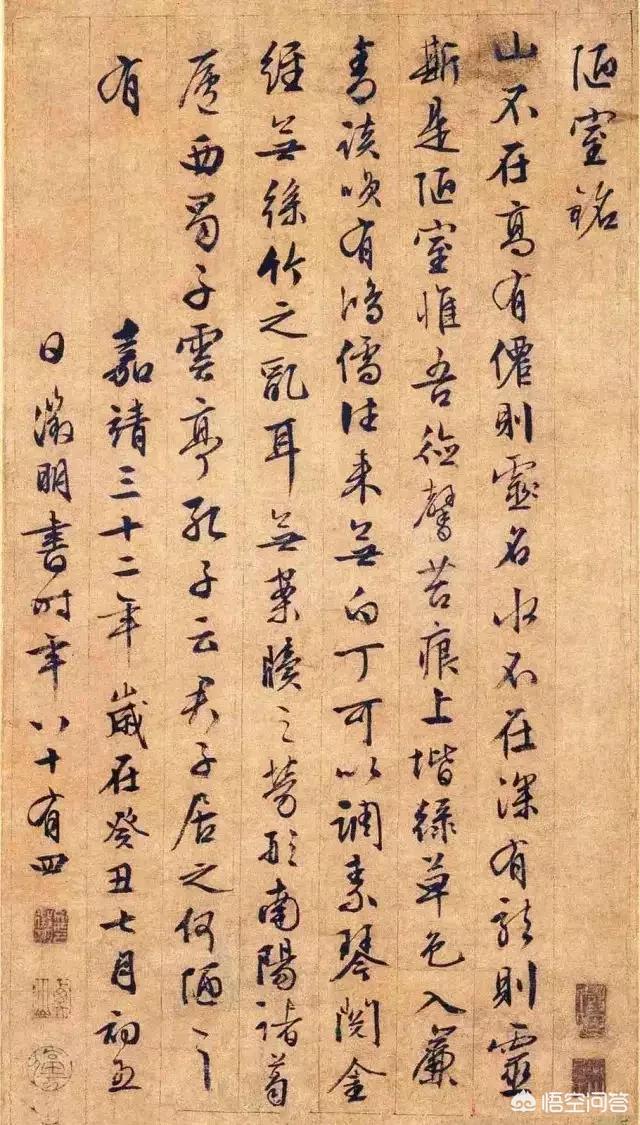 陋室銘
山不在高有僊則靈名水不在深有龍則靈
斯是陋室惟吾德馨苔痕上堦綠草色入簾
青談咲有鴻儒往来無白丁可以調素琴閱金
經無絲竹之亂耳無案牘之勞形南陽諸葛
廬西蜀子雲亭孔子云君子居之何陋之
有
嘉靖三十二年歲在癸丑七月初五
日徵明書時年八十有四
悟空问答